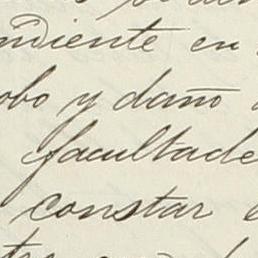 ndiente en
obo y daño
facultade
constar